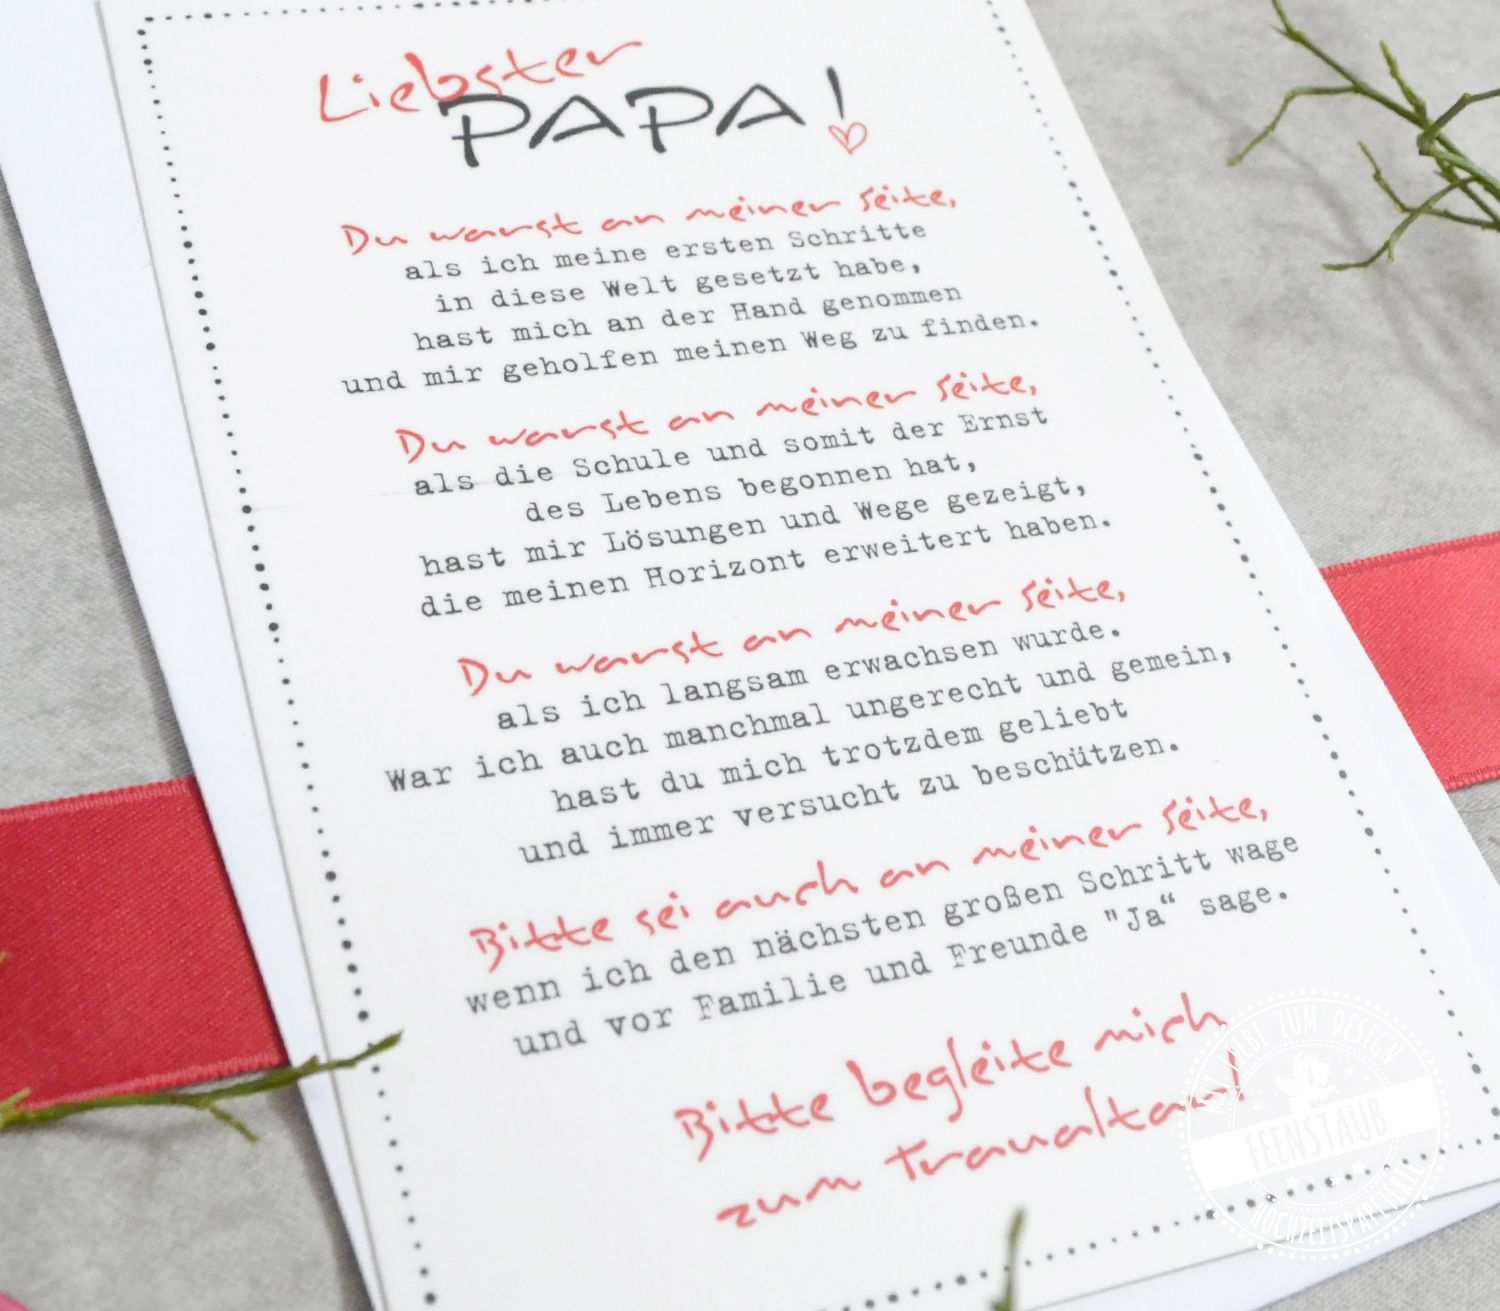 Liebster
PAPA!
Du warst an meiner Seite,
als ich meine ersten Schritte
in diese Welt gesetzt habe,
hast mich an der Hand genommen
und mir geholfen meinen Weg zu finden.
Du warst an meiner Seite,
als die Schule und somit der Ernst
des Lebens begonnen hat,
hast mir Lösungen und Wege gezeigt,
die meinen Horizont erweitert haben.
Du warst an meiner Seite,
als ich langsam erwachsen wurde.
War ich auch manchmal ungerecht und gemein,
hast du mich trotzdem geliebt
und immer versucht zu beschützen.
Bitte sei auch an meiner Seite,
wenn ich den nächsten großen Schritt wage
und vor Familie und Freunde "Ja“ sage.
Bitte begleite mich
zum Traualtar!
ZUM DESIGN
FEENSTAUB
HOCHZEITSPAPETERIE